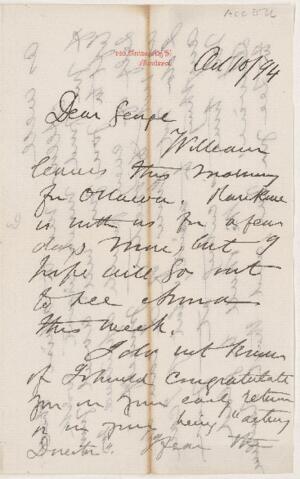 Oct 10/94
Dear George
William
leaves this morning
for Ottawa.
is with us for a few
days more, but I
hope will go out
to see Anna
this week.
I do not know
if I should congratulate
you on your early return
or on your being "acting
Director". I fear the